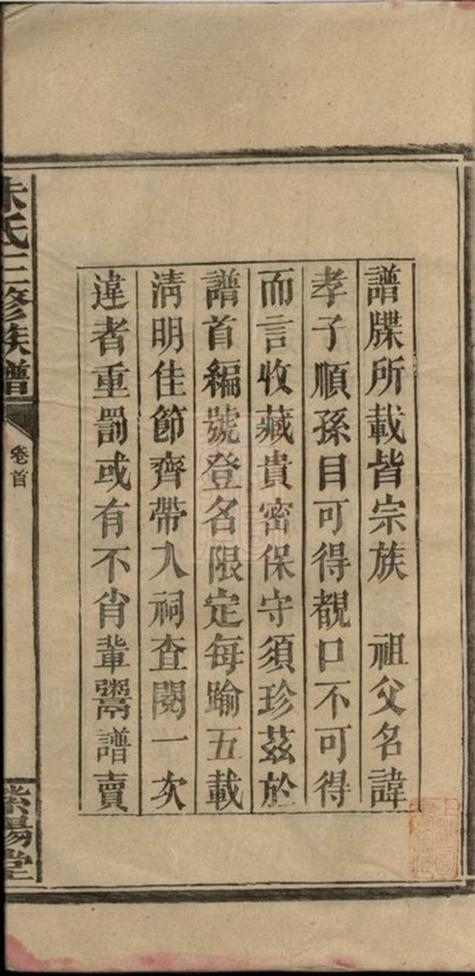 譜牒所載皆宗族　祖父名諱
孝子順孫目可得覩口不可得
而言收藏貴密保守須珍茲於
譜首編號登名限定每踰五載
淸明佳節齊帶入祠查閱一次
違者重罰或有不肖輩鬻譜賣
朱氏三修族譜
卷首
紫陽堂